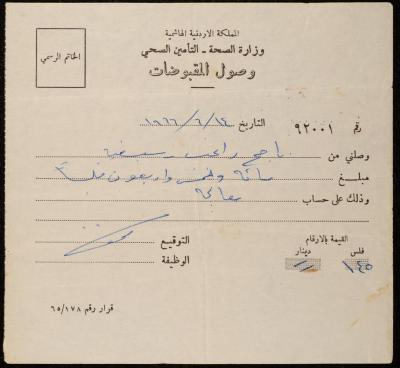 المملكة الاردنية الهاشمية
وزارة الصحة - التأمين الصحي
وصول المقبوضات
الخاتم الرسمي
رقم ٩٢٠٠١ التاريخ ١٩٦٦/٦/١٤
وصلني من ناجح راغب
مبلغ مائة وخمس واربعون فلساً
وذلك على حساب معالجة
القيمة بالارقام
فلس دينار
١٤٥ —
التوقيع
الوظيفة
قرار رقم ٦٥/١٧٨